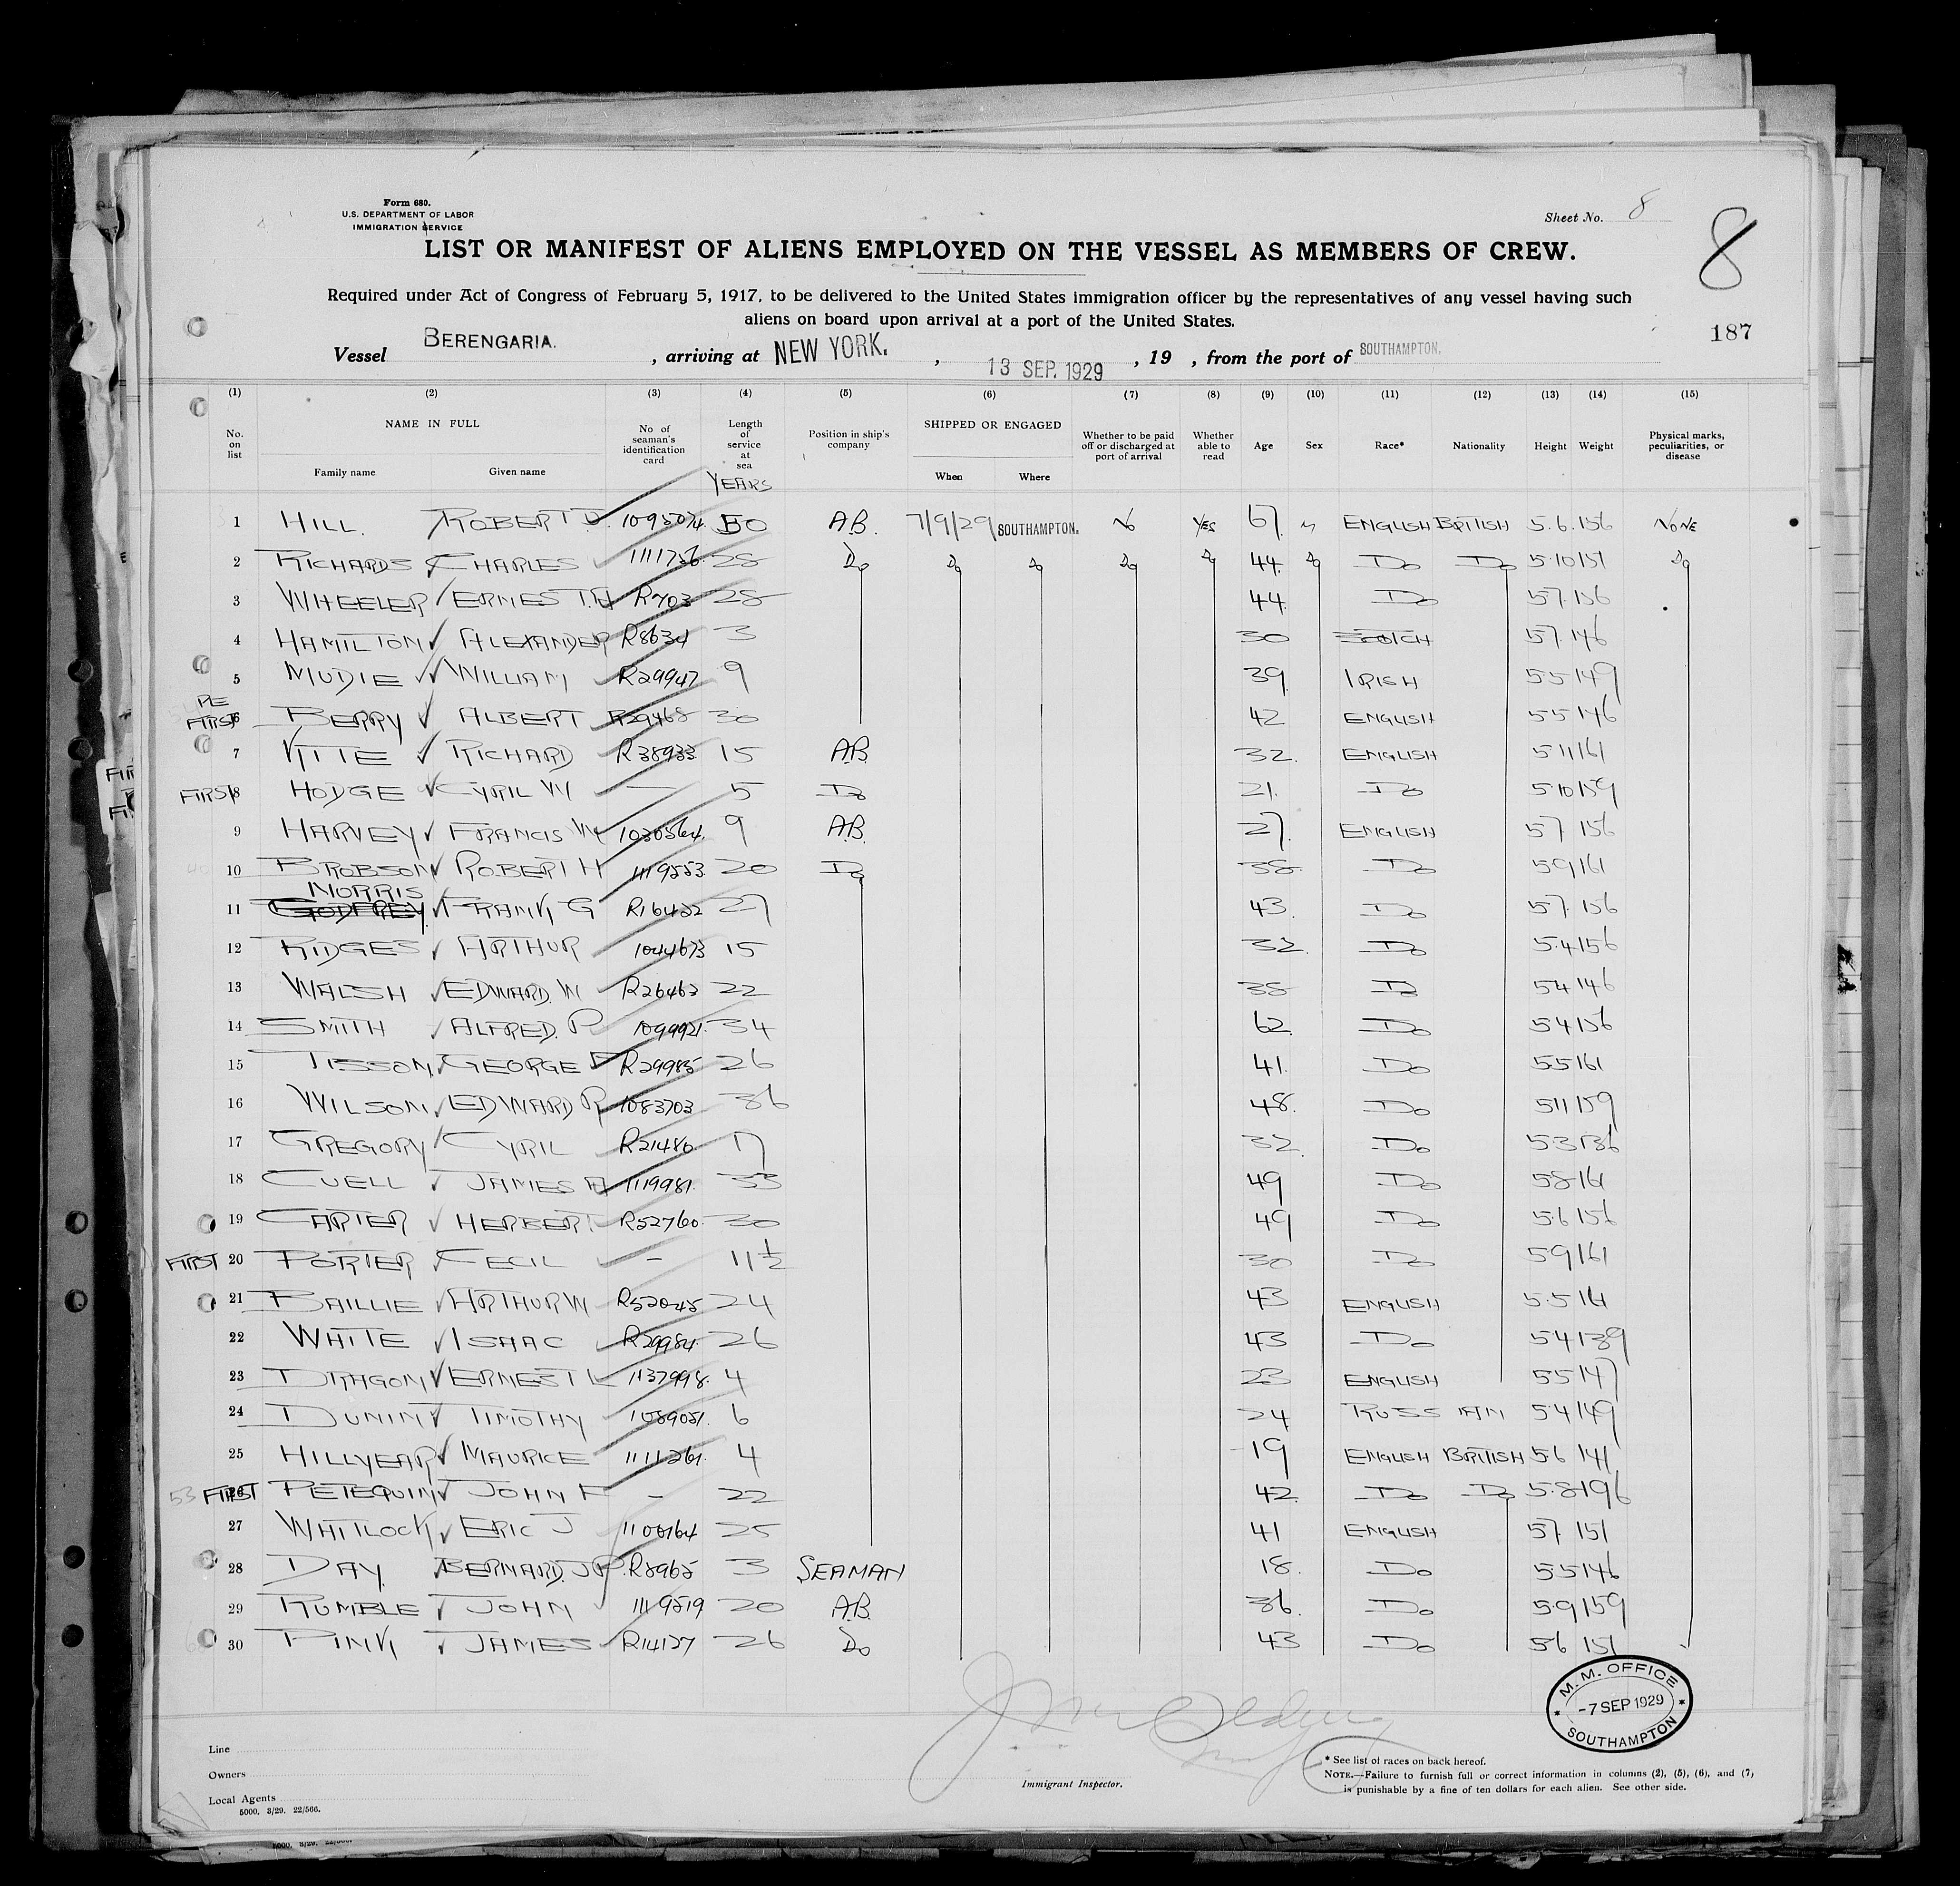 Form 680.
U.S. DEPARTMENT OF LABOR
IMMIGRATION SERVICE
Sheet No. 8
8
LIST OR MANIFEST OF ALIENS EMPLOYED ON THE VESSEL AS MEMBERS OF CREW.
Required under Act of Congress of February 5, 1917, to be delivered to the United States immigration officer by the representatives of any vessel having such
aliens on board upon arrival at a port of the United States.
187
Vessel BERENGARIA. , arriving at NEW YORK. , 13 SEP. 1929 , 19 , from the port of SOUTHAMPTON.
(1) (2) (3) (4) (5) (6) (7) (8) (9) (10) (11) (12) (13) (14) (15)
No. on list NAME IN FULL Family name Given name No. of seaman's identification card Length of service at sea YEARS Position in ship's company SHIPPED OR ENGAGED When Where Whether to be paid off or discharged at port of arrival Whether able to read Age Sex Race* Nationality Height Weight Physical marks, peculiarities, or disease
1 HILL. ROBERT D. 1095074 50 A.B. 7/9/29 SOUTHAMPTON. No YES 67. M ENGLISH BRITISH 5.6. 156 NONE
2 RICHARDS CHARLES 1111756 28 Do Do Do Do Do 44. Do Do Do 5.10 151 Do
3 WHEELER ERNEST R703 28 44. Do 5.7. 156
4 HAMILTON ALEXANDER R8634 3 30 SCOTCH 5.7. 146
5 MUDIE WILLIAM R29947 9 39 IRISH 5.5 149
RE FIRST 6 BERRY ALBERT R29468 30 42 ENGLISH 5.5 146
7 KITTE RICHARD R38933 15 A.B. 32. ENGLISH 5.11 161
FIRST 8 HODGE CYRIL W — 5 Do 21. Do 5.10 159
9 HARVEY FRANCIS W 1030564. 9 A.B. 27. ENGLISH 5.7 156
10 BROBSON ROBERT H 1119553. 20 Do 38. Do 5.9 161
NORRIS
11 GODFREY FRANK G R16422 27 43. Do 5.7. 156
12 RIDGES ARTHUR 1044673 15 32. Do 5.4 156
13 WALSH EDWARD. W R26463 22 38 Do 5.4 146
14 SMITH ALFRED. R 1099921. 34 62. Do 5.4 156
15 TISSON GEORGE R29985 26 41. Do 5.5 161
16 WILSON EDWARD R 1083703 36 48. Do 5.11 159
17 GREGORY CYRIL R21480 17 32. Do 5.3 136
18 CUELL JAMES A 1119981. 33 49 Do 5.8 161
19 CARTER HERBERT R52760. 30 49 Do 5.6 156
FIRST 20 PORTER CECIL — 11½ 30 Do 5.9 161
21 BAILLIE ARTHUR W R52045 24 43 ENGLISH 5.5 161
22 WHITE ISAAC R29984. 26 43 Do 5.4 139
23 DRAGON ERNEST L 1137998. 4 23 ENGLISH 5.5 147
24 DUNIN TIMOTHY 1089051. 6 24 RUSSIAN 5.4 149
25 HILLYEAR MAURICE 1111261. 4 19 ENGLISH BRITISH 5.6 141
53 FIRST 26 PETEQUIN JOHN F — 22 42. Do Do 5.8 196
27 WHITLOCK ERIC J 1106164 25 41 ENGLISH 5.7. 151
28 DAY. BERNARD. J P. R8965 3 SEAMAN 18. Do 5.5 146
29 RUMBLE JOHN 1119519 20 A.B. 36. Do 5.9 159
30 PINK JAMES R14127 26 Do 43 Do 5.6 151
M. M. OFFICE
-7 SEP 1929
SOUTHAMPTON
Line
Owners
Local Agents
5000. 3/29. 22/566.
Immigrant Inspector.
* See list of races on back hereof.
NOTE.—Failure to furnish full or correct information in columns (2), (5), (6), and (7)
is punishable by a fine of ten dollars for each alien. See other side.